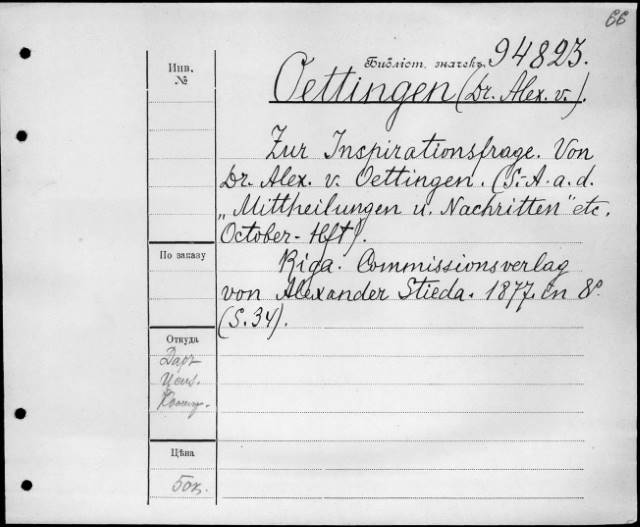 66
Библіот. значекъ. 94823.
Инв.
№
Oettingen (Dr. Alex. v.).
Zur Inspirationsfrage. Von
Dr. Alex. v. Oettingen. (S.-A. a. d.
„Mittheilungen u. Nachritten" etc.
October-Hft).
По заказу
Riga. Commissionsverlag
von Alexander Stieda. 1877. in 8°.
(S. 34).
Откуда
Даръ
Ценз.
Цѣна
50к.